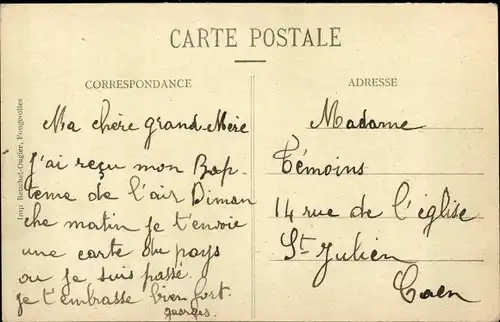 CARTE POSTALE
CORRESPONDANCE
Ma chère grand-Mère
J'ai reçu mon Bap-
teme de l'air Diman
che matin je t'envoie
une carte du pays
ou je suis passé.
je t'embrasse bien fort.
georges.
ADRESSE
Madame
Témoins
14 rue de l'église
St Julien
Caen
Imp. Reuchet-Ougier, Fougerolles